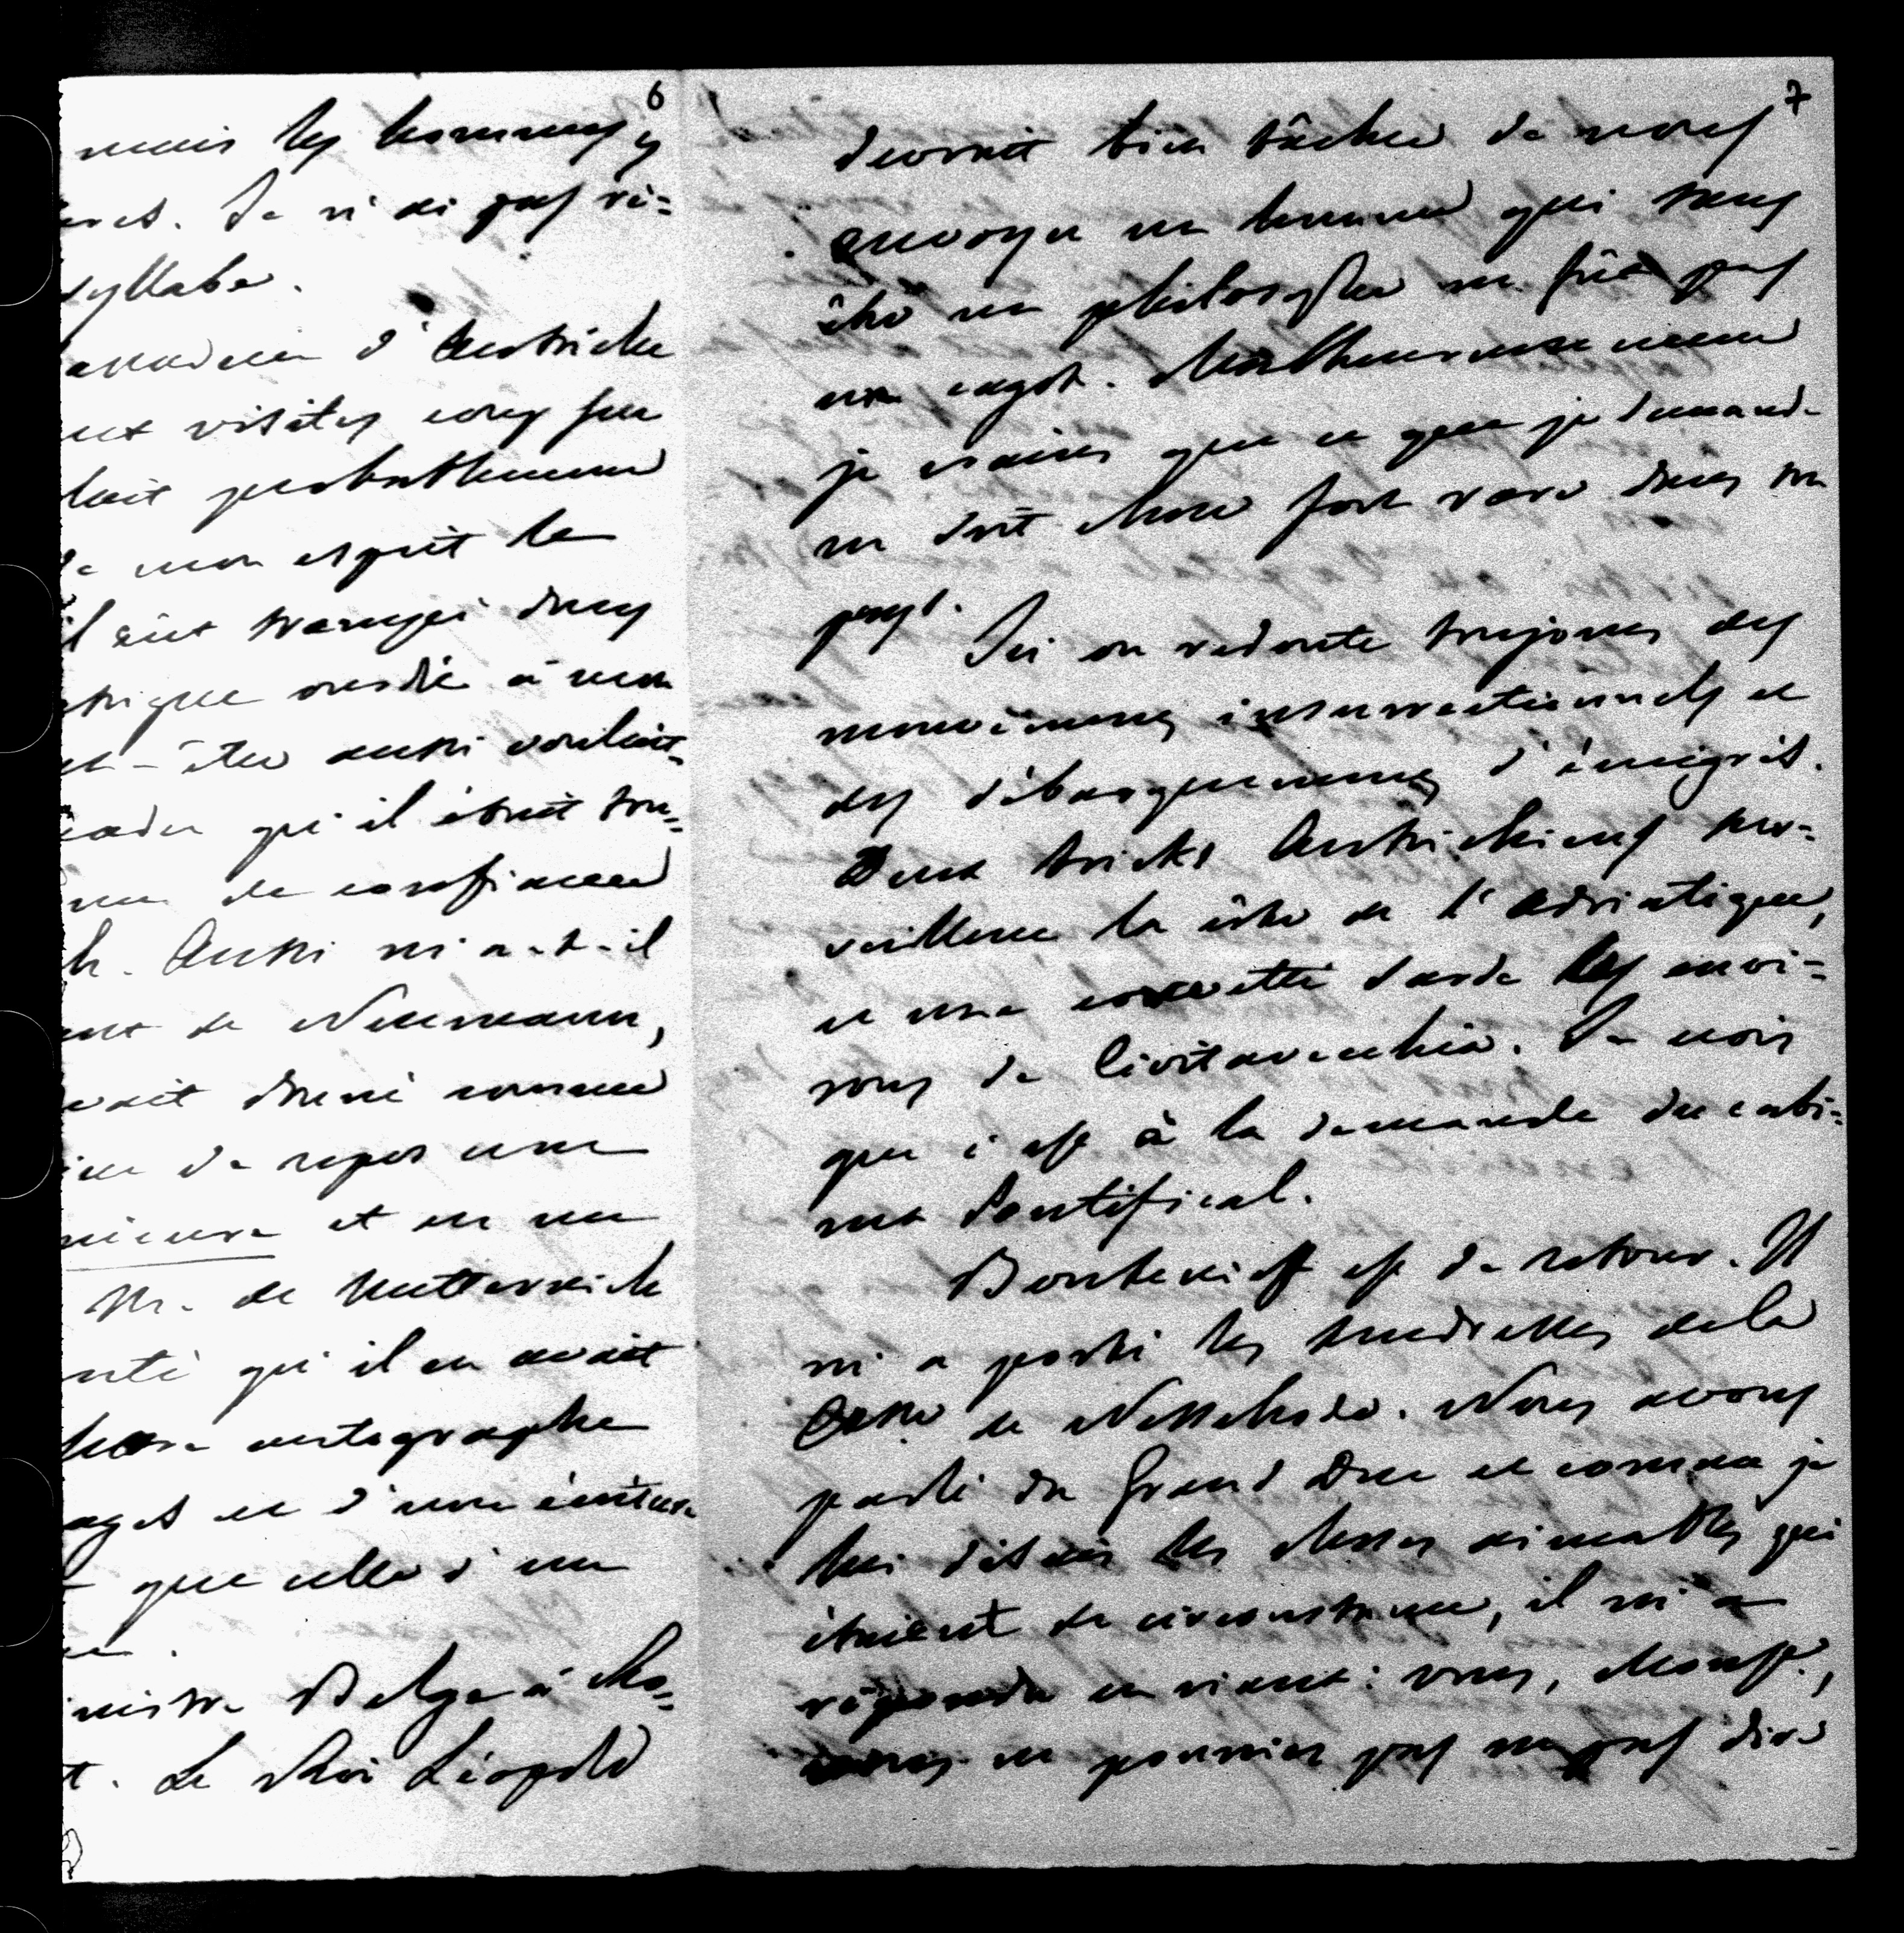 6
mais les hommes y
Je n'ai pas ré-
syllabe.
d'Autriche
visites coup sur
probablement
mon esprit le
il eût trempé dans
ourdie à mon
-être aussi voulait-
qu'il était tou-
de confiance
Aussi m'a-t-il
de Neumann,
donné comme
de repos une
et en un
Mr. de Metternich
qu'il en avait
autographe
et d'une écriture
que celle d'un
Belge à
Le Roi Léopold
7
devrait bien tâcher de nous
envoyer un homme qui sans
être un philosophe ne fût pas
un cagot. Malheureusement
je crains que ce que je demande
ne soit chose fort rare dans ce
pays.
Ici on redoute toujours des
mouvements insurrectionnels et
des débarquements d'émigrés.
Deux bricks Autrichiens sur-
veillent la côte de l'Adriatique,
et une corvette sarde les envi-
rons de Civitavecchia. Je crois
que c'est à la demande du cabi-
net Pontifical.
Boutenieff est de retour. Il
m'a porté les tendresses de la
Ctsse de Nesselrode. Nous avons
parlé du Grand Duc et comme je
lui disais les choses aimables qui
étaient de circonstance, il m'a
répondu en riant: vous, Monsgr,
vous ne pourriez pas ne pas dire